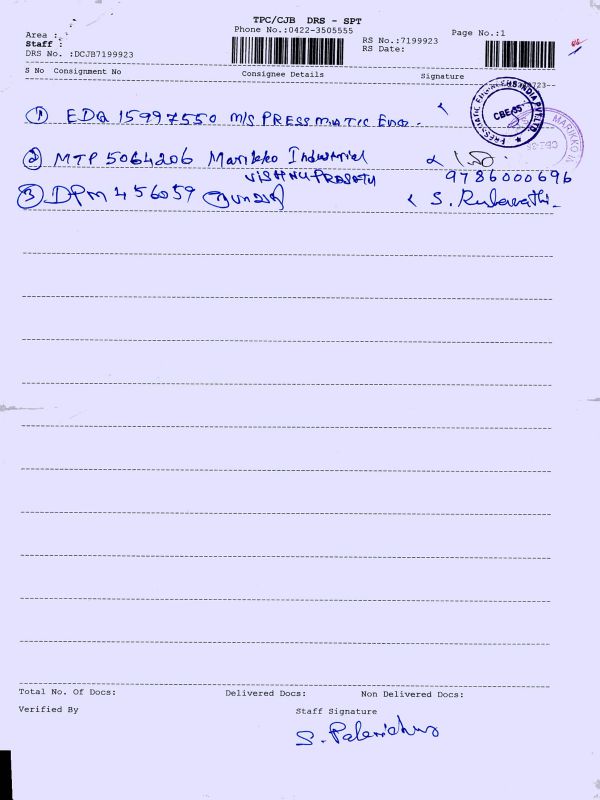 TPC/CJB DRS - SPT
Phone No.:0422-3505555
Area :
Staff :
DRS No. :DCJB7199923
RS No.:7199923
RS Date:
Page No.:1
S No Consignment No Consignee Details Signature
① EDQ 15997550 M/S PRESSMATIC Engg.
CBE-35
② MTP 5064206 Marikko Industrial
MARIKKO
VISHNU PRASATH 9786000696
③ DPM 456059 S.
Total No. Of Docs: Delivered Docs: Non Delivered Docs:
Verified By Staff Signature
S.